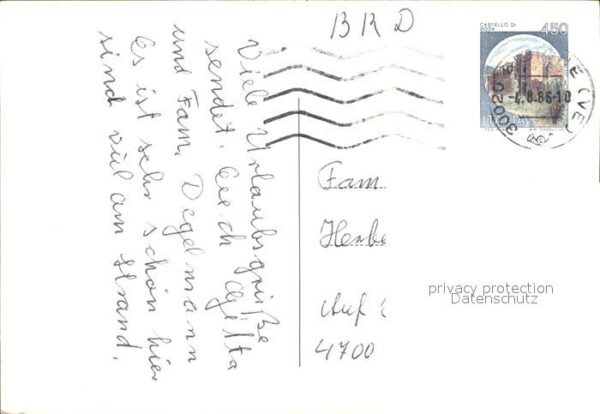 BRD
CASTELLO DI
450
30020 E (VE)
-4.8.86-10
Viele Urlaubsgrüße
sendet Euch Agetta
und Fam. Degelmann
Es ist sehr schön hier
sind viel am Strand.
Fam.
Herbe
Auf
4700
privacy protection
Datenschutz